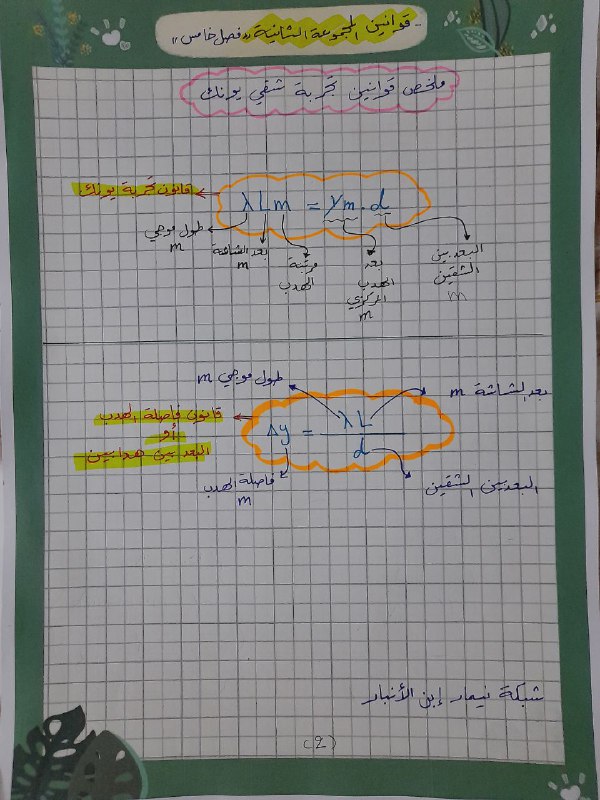 - قوانين المجموعة الثانية «فصل خامس»
ملخص قوانين تجربة شقي يونك
قانون تجربة يونك
λ L m = ym . d
طول موجي m
بعد الشاشة m
مرتبة الهدب
بعد الهدب المركزي m
البعد بين الشقين m
طول موجي m
بعد الشاشة m
قانون فاصلة الهدب
أو
البعد بين هدابين
Δy = λL / d
فاصلة الهدب m
البعد بين الشقين
شبكة نيمار إبن الأنبار
(2)